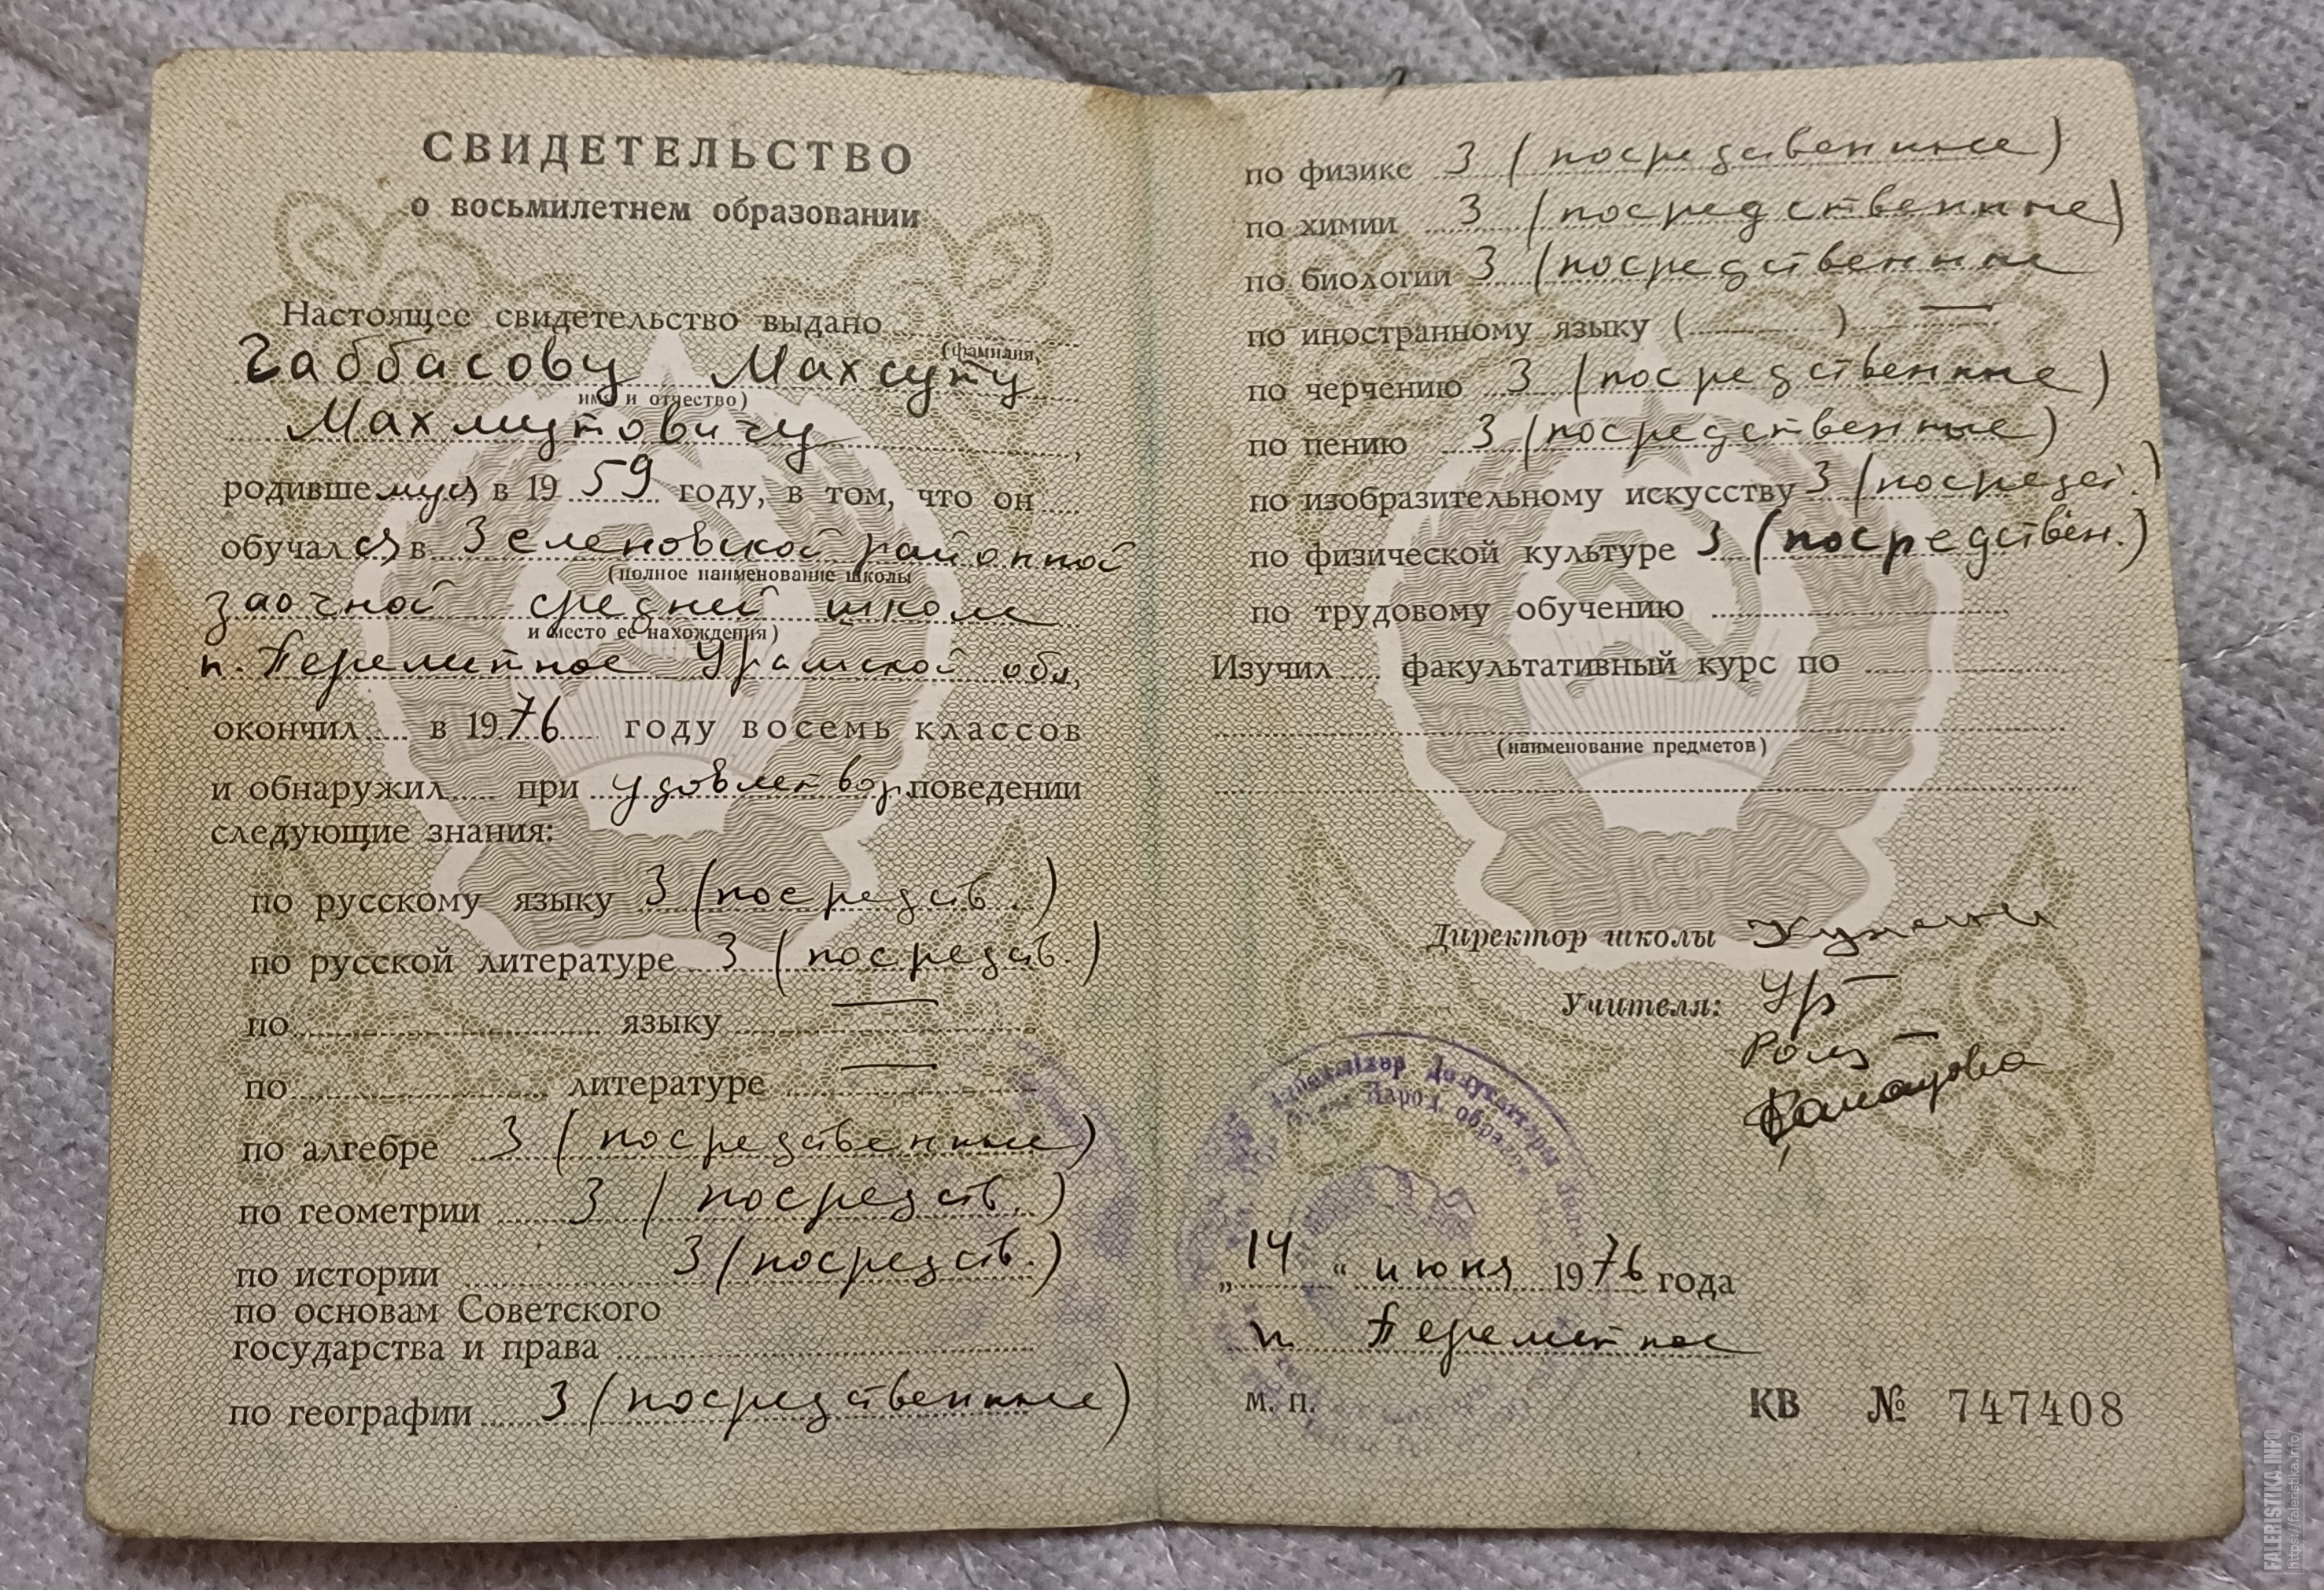 СВИДЕТЕЛЬСТВО
о восьмилетнем образовании
Настоящее свидетельство выдано
(фамилия,
Габбасову Махсуту
имя и отчество)
Махмутовичу,
родившемуся в 1959 году, в том, что он
обучался в Зеленовской районной
(полное наименование школы
заочной средней школе
и место её нахождения)
п. Переметное Уральской обл,
окончил в 1976 году восемь классов
и обнаружил при удовлетвор. поведении
следующие знания:
по русскому языку 3 (посредств.)
по русской литературе 3 (посредств.)
по языку —
по литературе —
по алгебре 3 (посредственные)
по геометрии 3 (посредств.)
по истории 3 (посредств.)
по основам Советского
государства и права
по географии 3 (посредственные)
по физике 3 (посредственные)
по химии 3 (посредственные)
по биологии 3 (посредственные
по иностранному языку ( ) —
по черчению 3 (посредственные)
по пению 3 (посредственные)
по изобразительному искусству 3 (посредст.)
по физической культуре 3 (посредствен.)
по трудовому обучению
Изучил факультативный курс по
(наименование предметов)
Директор школы
Учителя:
„14“ июня 1976 года
п. Переметное
м. п.
КВ № 747408
FALERISTIKA.INFO
https://faleristika.info/